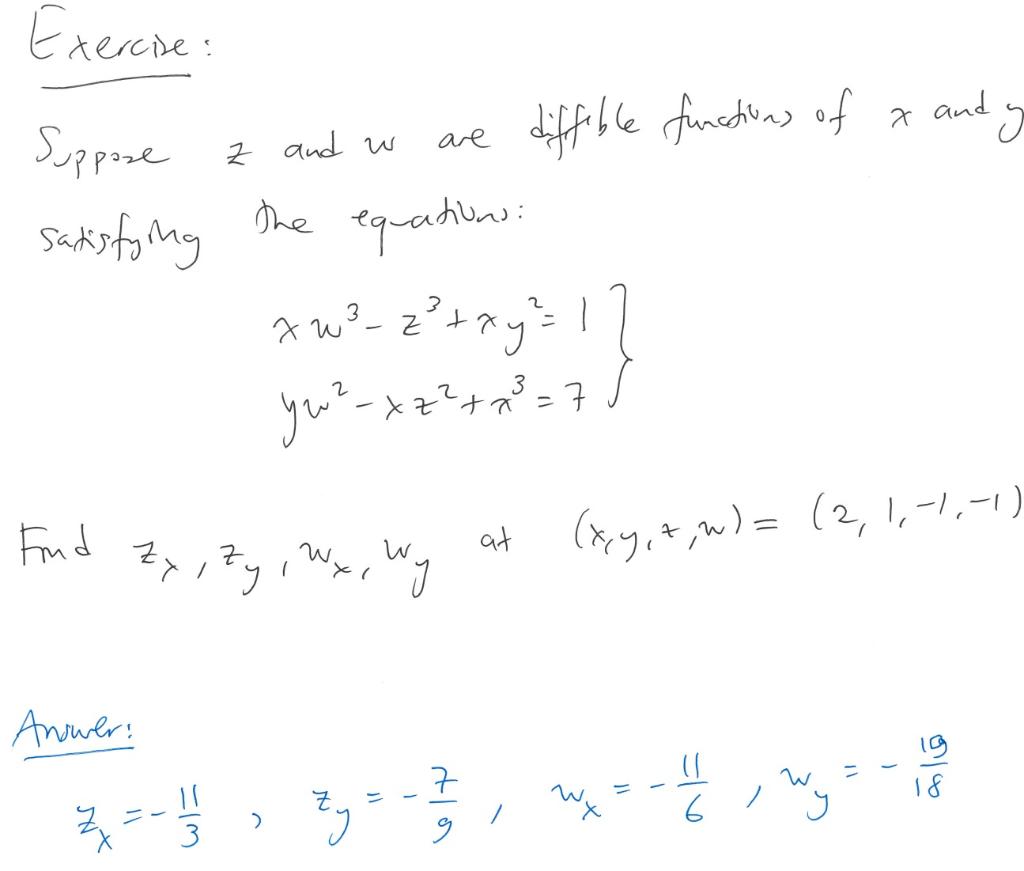 Exercise:
Suppose z and w are diff'ble functions of x and y
satisfying the equations:
xw³ - z³ + xy² = 1
yw² - xz² + x³ = 7 }
Find z_x, z_y, w_x, w_y at (x,y,z,w) = (2, 1, -1, -1)
Answer:
z_x = -11/3 , z_y = -7/9 , w_x = -11/6 , w_y = -19/18